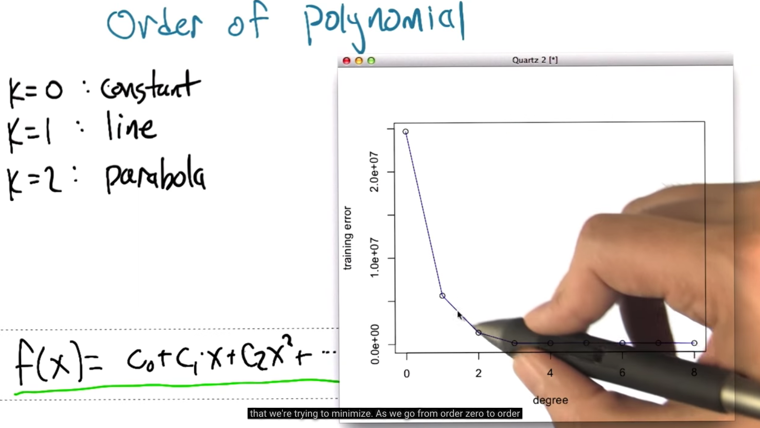 Order of polynomial
k=0 : constant
k=1 : line
k=2 : parabola
f(x)= c₀+c₁·x+c₂x²+ ...
Quartz 2 [*]
training error
0.0e+00 1.0e+07 2.0e+07
0 2 4 6 8
degree
that we're trying to minimize. As we go from order zero to order